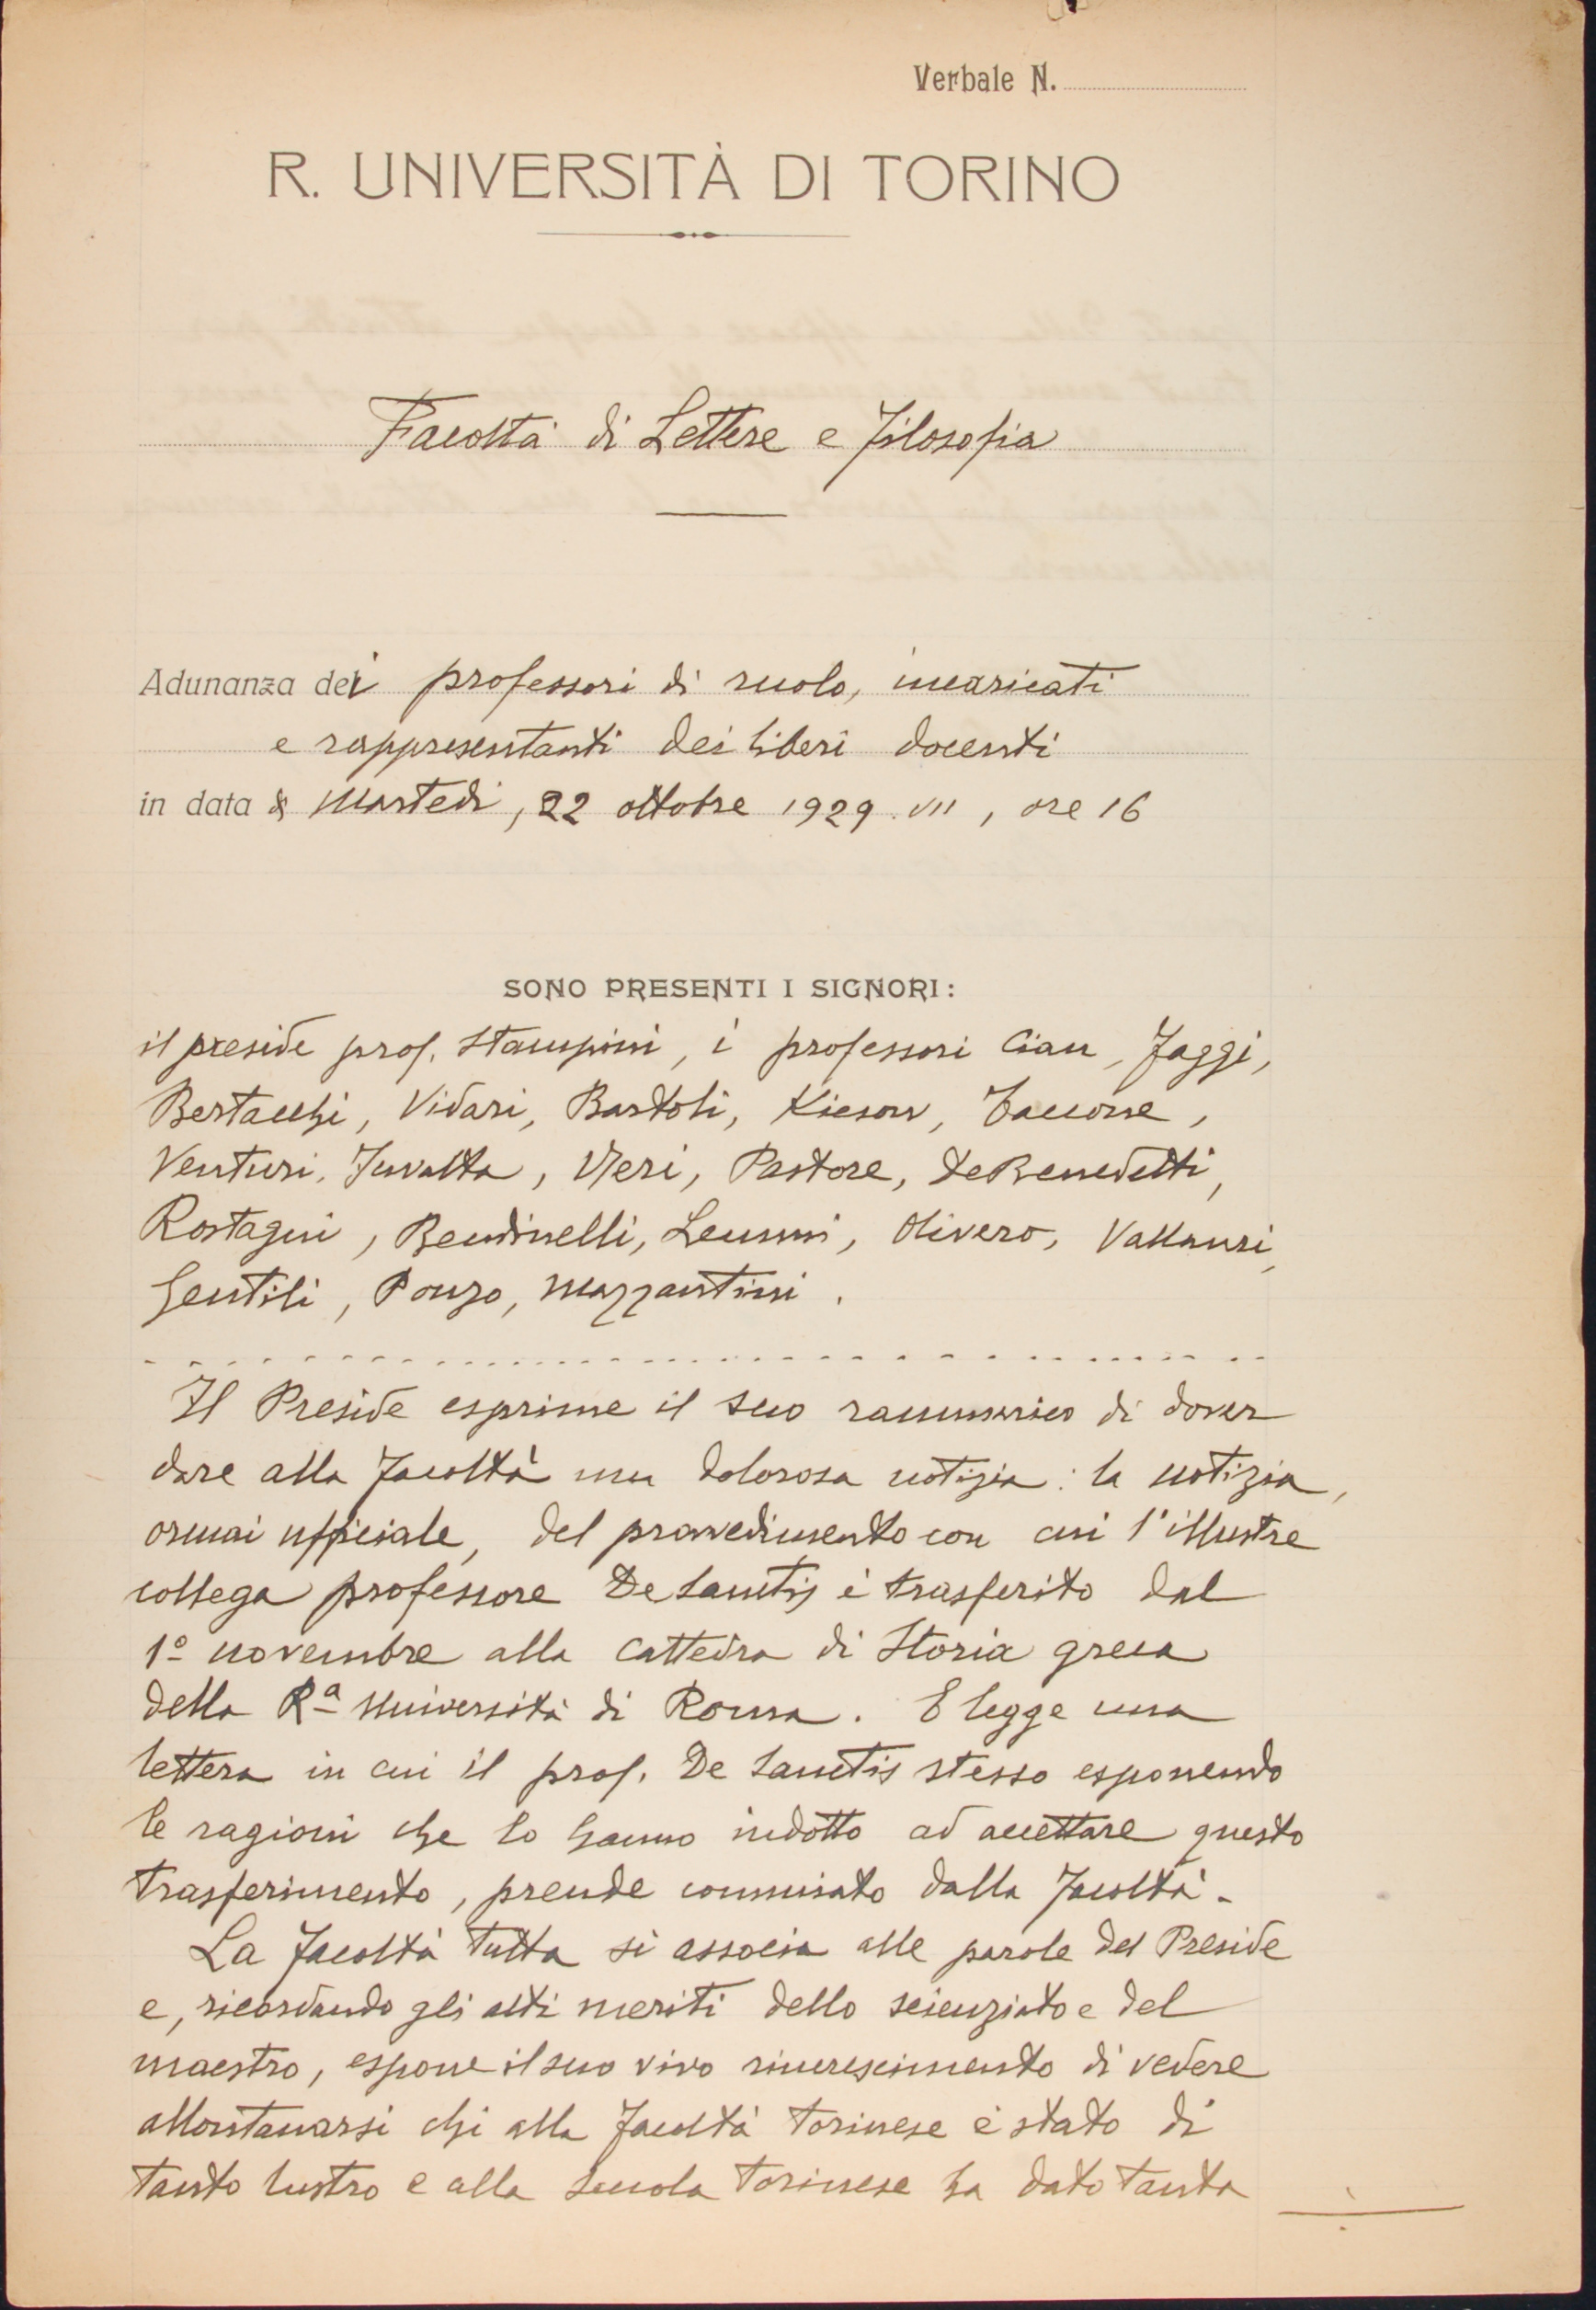 Verbale N.
R. UNIVERSITÀ DI TORINO
Facoltà di Lettere e Filosofia
Adunanza dei professori di ruolo, incaricati
e rappresentanti dei liberi docenti
in data di Martedì, 22 ottobre 1929.VII, ore 16
SONO PRESENTI I SIGNORI:
il preside prof. Stampini, i professori Cian, Faggi,
Bertacchi, Vidari, Bartoli, Kiesow, Taccone,
Venturi, Juvalta, Neri, Pastore, De Benedetti,
Rostagni, Bendinelli, Leumni, Olivero, Vallauri,
Gentili, Ponzo, Mazzantini.
Il Preside esprime il suo rammarico di dover
dare alla Facoltà una dolorosa notizia: la notizia,
ormai ufficiale, del provvedimento con cui l'illustre
collega professore De Sanctis è trasferito dal
1º novembre alla cattedra di Storia greca
della Rª Università di Roma. E legge una
lettera in cui il prof. De Sanctis stesso esponendo
le ragioni che lo hanno indotto ad accettare questo
trasferimento, prende commiato dalla Facoltà.
La Facoltà tutta si associa alle parole del Preside
e, ricordando gli alti meriti dello scienziato e del
maestro, espone il suo vivo rincrescimento di vedere
allontanarsi chi alla Facoltà torinese è stato di
tanto lustro e alla Scuola torinese ha dato tanta